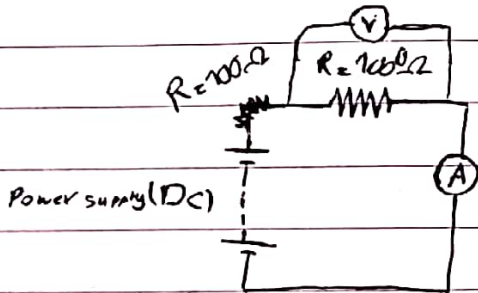 V
R=100Ω
R=1000Ω
A
Power supply(DC)